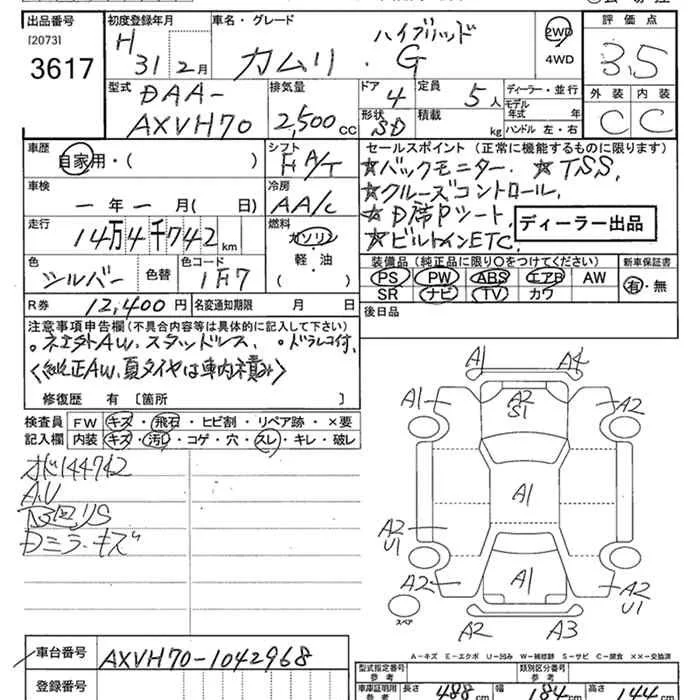 出品番号 初度登録年月 車名・グレード 評価点
[2073]
3617
H 31年 2月
カムリ ハイブリッド ・ G
2WD
4WD
3.5
外装 内装
C C
型式 排気量 ドア 定員 ディーラー・並行
DAA-
AXVH70
2,500 CC
4 5人
形状 積載 モデル年式 年
SD kg ハンドル 左・右
車歴 シフト セールスポイント (正常に機能するものに限ります)
自家用・( ) F A/T
☆バックモニター. ☆TSS.
車検 冷房 ☆クルーズコントロール.
ー年ー月( 日) AA/C
☆D席Pシート.
ディーラー出品
走行 燃料
14万4千742km ガソリン
☆ビルトインETC.
軽・油
( )
色 色替 色コード
シルバー 1F7
装備品 (純正品に限り○をつけてください) 新車保証書
PS PW ABS エアB AW
有・無
SR ナビ TV カワ
R券 12,400円 名変通知期限 月 日
後日品
注意事項申告欄(不具合内容等は具体的に記入して下さい)
。社外AW.スタッドレス. 。ドラレコ付.
〈純正AW.夏タイヤは車内積み〉
修復歴 有 [箇所 ]
検査員 FW キズ・飛石・ヒビ割・リペア跡・×要
記入欄 内装 キズ・汚レ・コゲ・穴・スレ・キレ・破レ
オド144742
A.U
Dミラーキズ
A1 A4
A1 A2 S1 A2
A1
A2 U1
A1
A2 A2 U1
スペア
A2 A3
A-キズ E-エクボ U-凹み W-補修跡 S-サビ C-腐食 XX-交換済
車台番号 AXVH70-1042968
型式指定番号 参考 類別区分番号 参考
登録番号
車庫証明用 参考 長さ 488cm 幅 184cm 高さ 144cm